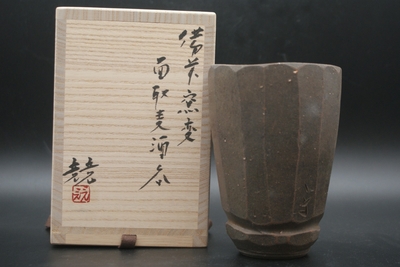 備前窯変
面取麦酒呑